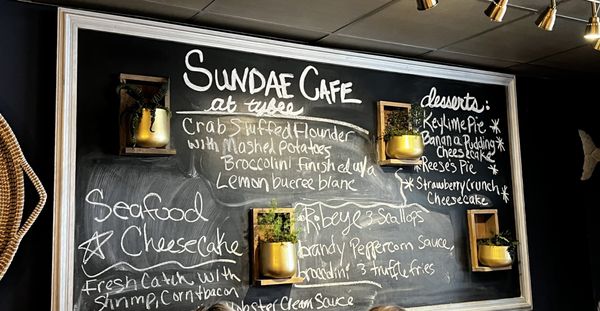 Sundae Cafe
at tybee
Crab Stuffed Flounder
with Mashed potatoes
Broccolini finished w/a
Lemon bueree blanc
Seafood
Cheesecake
Fresh Catch with
Shrimp, Corn + bacon
Lobster Cream Sauce
Ribeye 3 Scallops
brandy Peppercorn Sauce,
broccolini 3 truffle fries
desserts:
Key Lime Pie
Banana Pudding
Cheesecake
Reese's Pie
Strawberry Crunch
Cheesecake